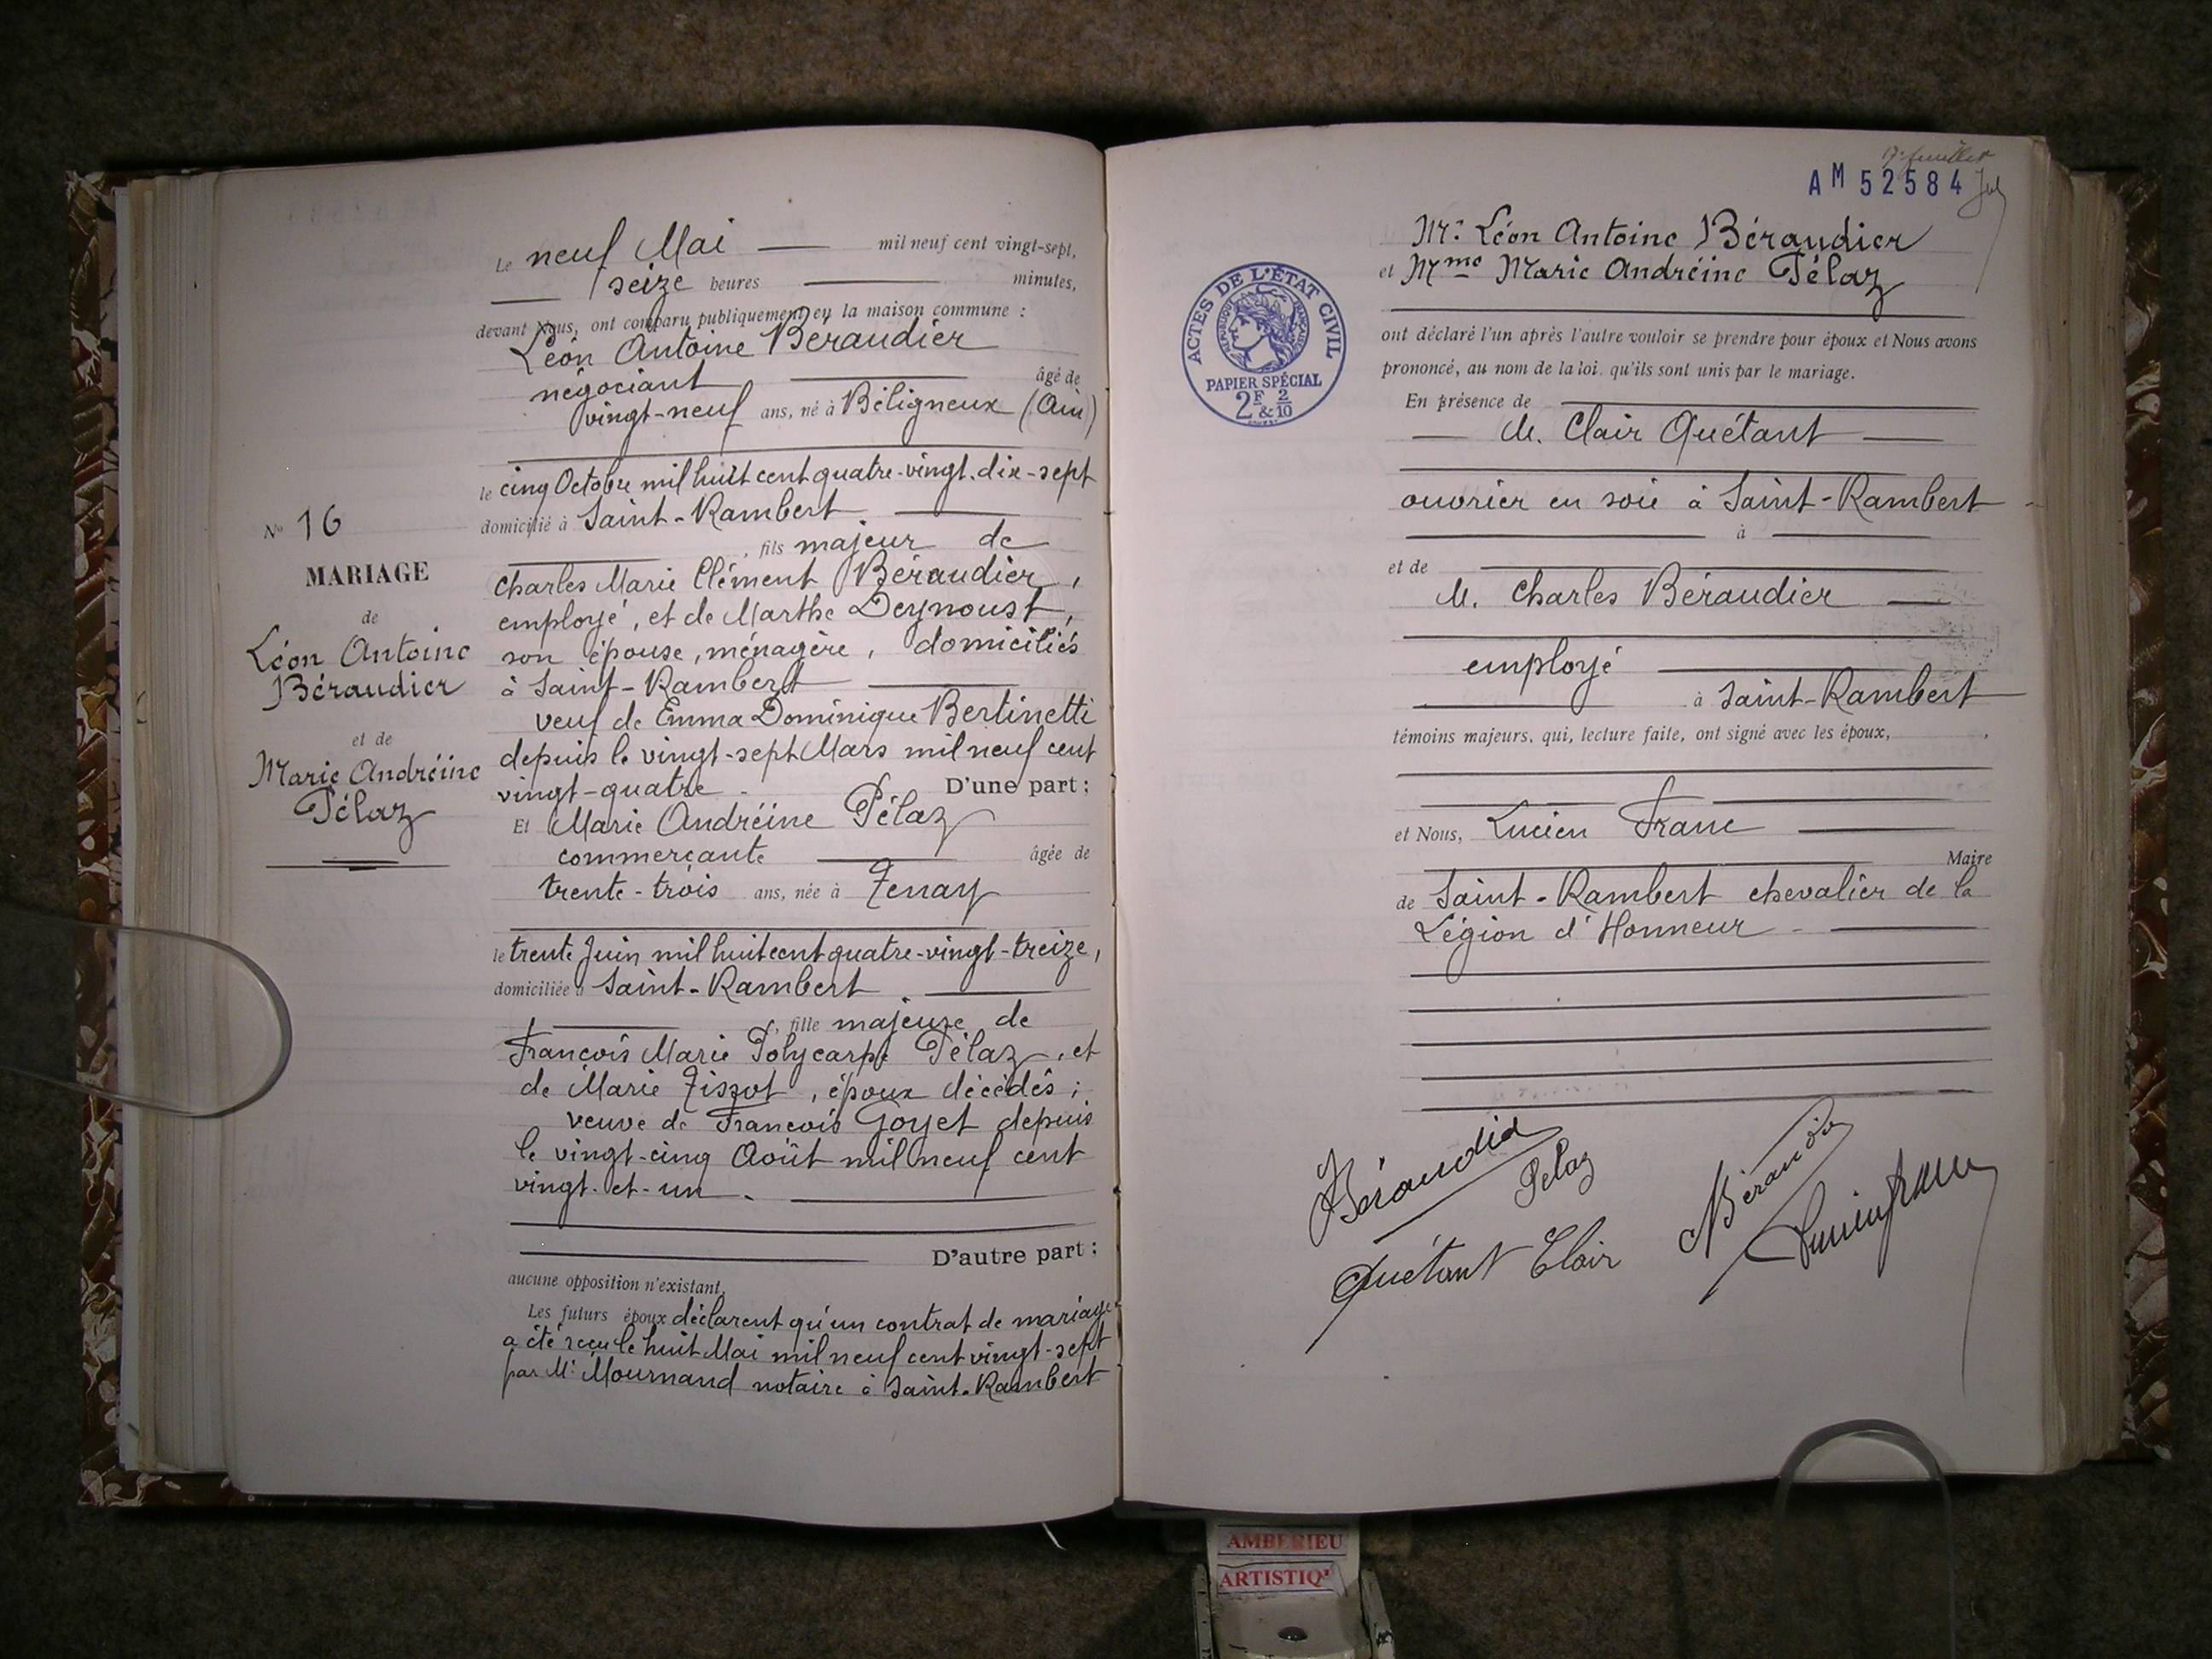 N° 16
MARIAGE
de
Léon Antoine
Béraudier
et de
Marie Andréine
Pélaz
Le neuf Mai mil neuf cent vingt-sept,
seize heures minutes,
devant Nous, ont comparu publiquement en la maison commune :
Léon Antoine Béraudier
négociant âgé de
vingt-neuf ans, né à Béligneux (Ain)
le cinq Octobre mil huit cent quatre-vingt-dix-sept
domicilié à Saint-Rambert
, fils majeur de
Charles Marie Clément Béraudier,
employé, et de Marthe Deynoust,
son épouse, ménagère, domiciliés
à Saint-Rambert
veuf de Emma Dominique Bertinetti
depuis le vingt-sept Mars mil neuf cent
vingt-quatre. D'une part :
Et Marie Andréine Pélaz
commerçante âgée de
trente-trois ans, née à Tenay
le trente Juin mil huit cent quatre-vingt-treize,
domiciliée à Saint-Rambert
, fille majeure de
François Marie Polycarpe Pélaz, et
de Marie Tissot, époux décédés ;
veuve de François Goyet depuis
le vingt-cinq Août mil neuf cent
vingt-et-un.
D'autre part :
aucune opposition n'existant,
Les futurs époux déclarent qu'un contrat de mariage
a été reçu le huit Mai mil neuf cent vingt-sept
par Me Mournand notaire à Saint-Rambert
17e feuillet
AM 52584
ACTES DE L'ÉTAT CIVIL
RÉPUBLIQUE FRANÇAISE
PAPIER SPÉCIAL
2F & 2/10
Mr. Léon Antoine Béraudier
et Mme Marie Andréine Pélaz
ont déclaré l'un après l'autre vouloir se prendre pour époux et Nous avons
prononcé, au nom de la loi, qu'ils sont unis par le mariage.
En présence de
M. Clair Quétant
ouvrier en soie à Saint-Rambert
à
et de
M. Charles Béraudier
employé
à Saint-Rambert
témoins majeurs, qui, lecture faite, ont signé avec les époux,
et Nous, Lucien Franc
Maire
de Saint-Rambert chevalier de la
Légion d'Honneur
Béraudier
Pelaz
Béraudier
Quétant Clair
Lucien Franc
AMBERIEU
ARTISTIQ